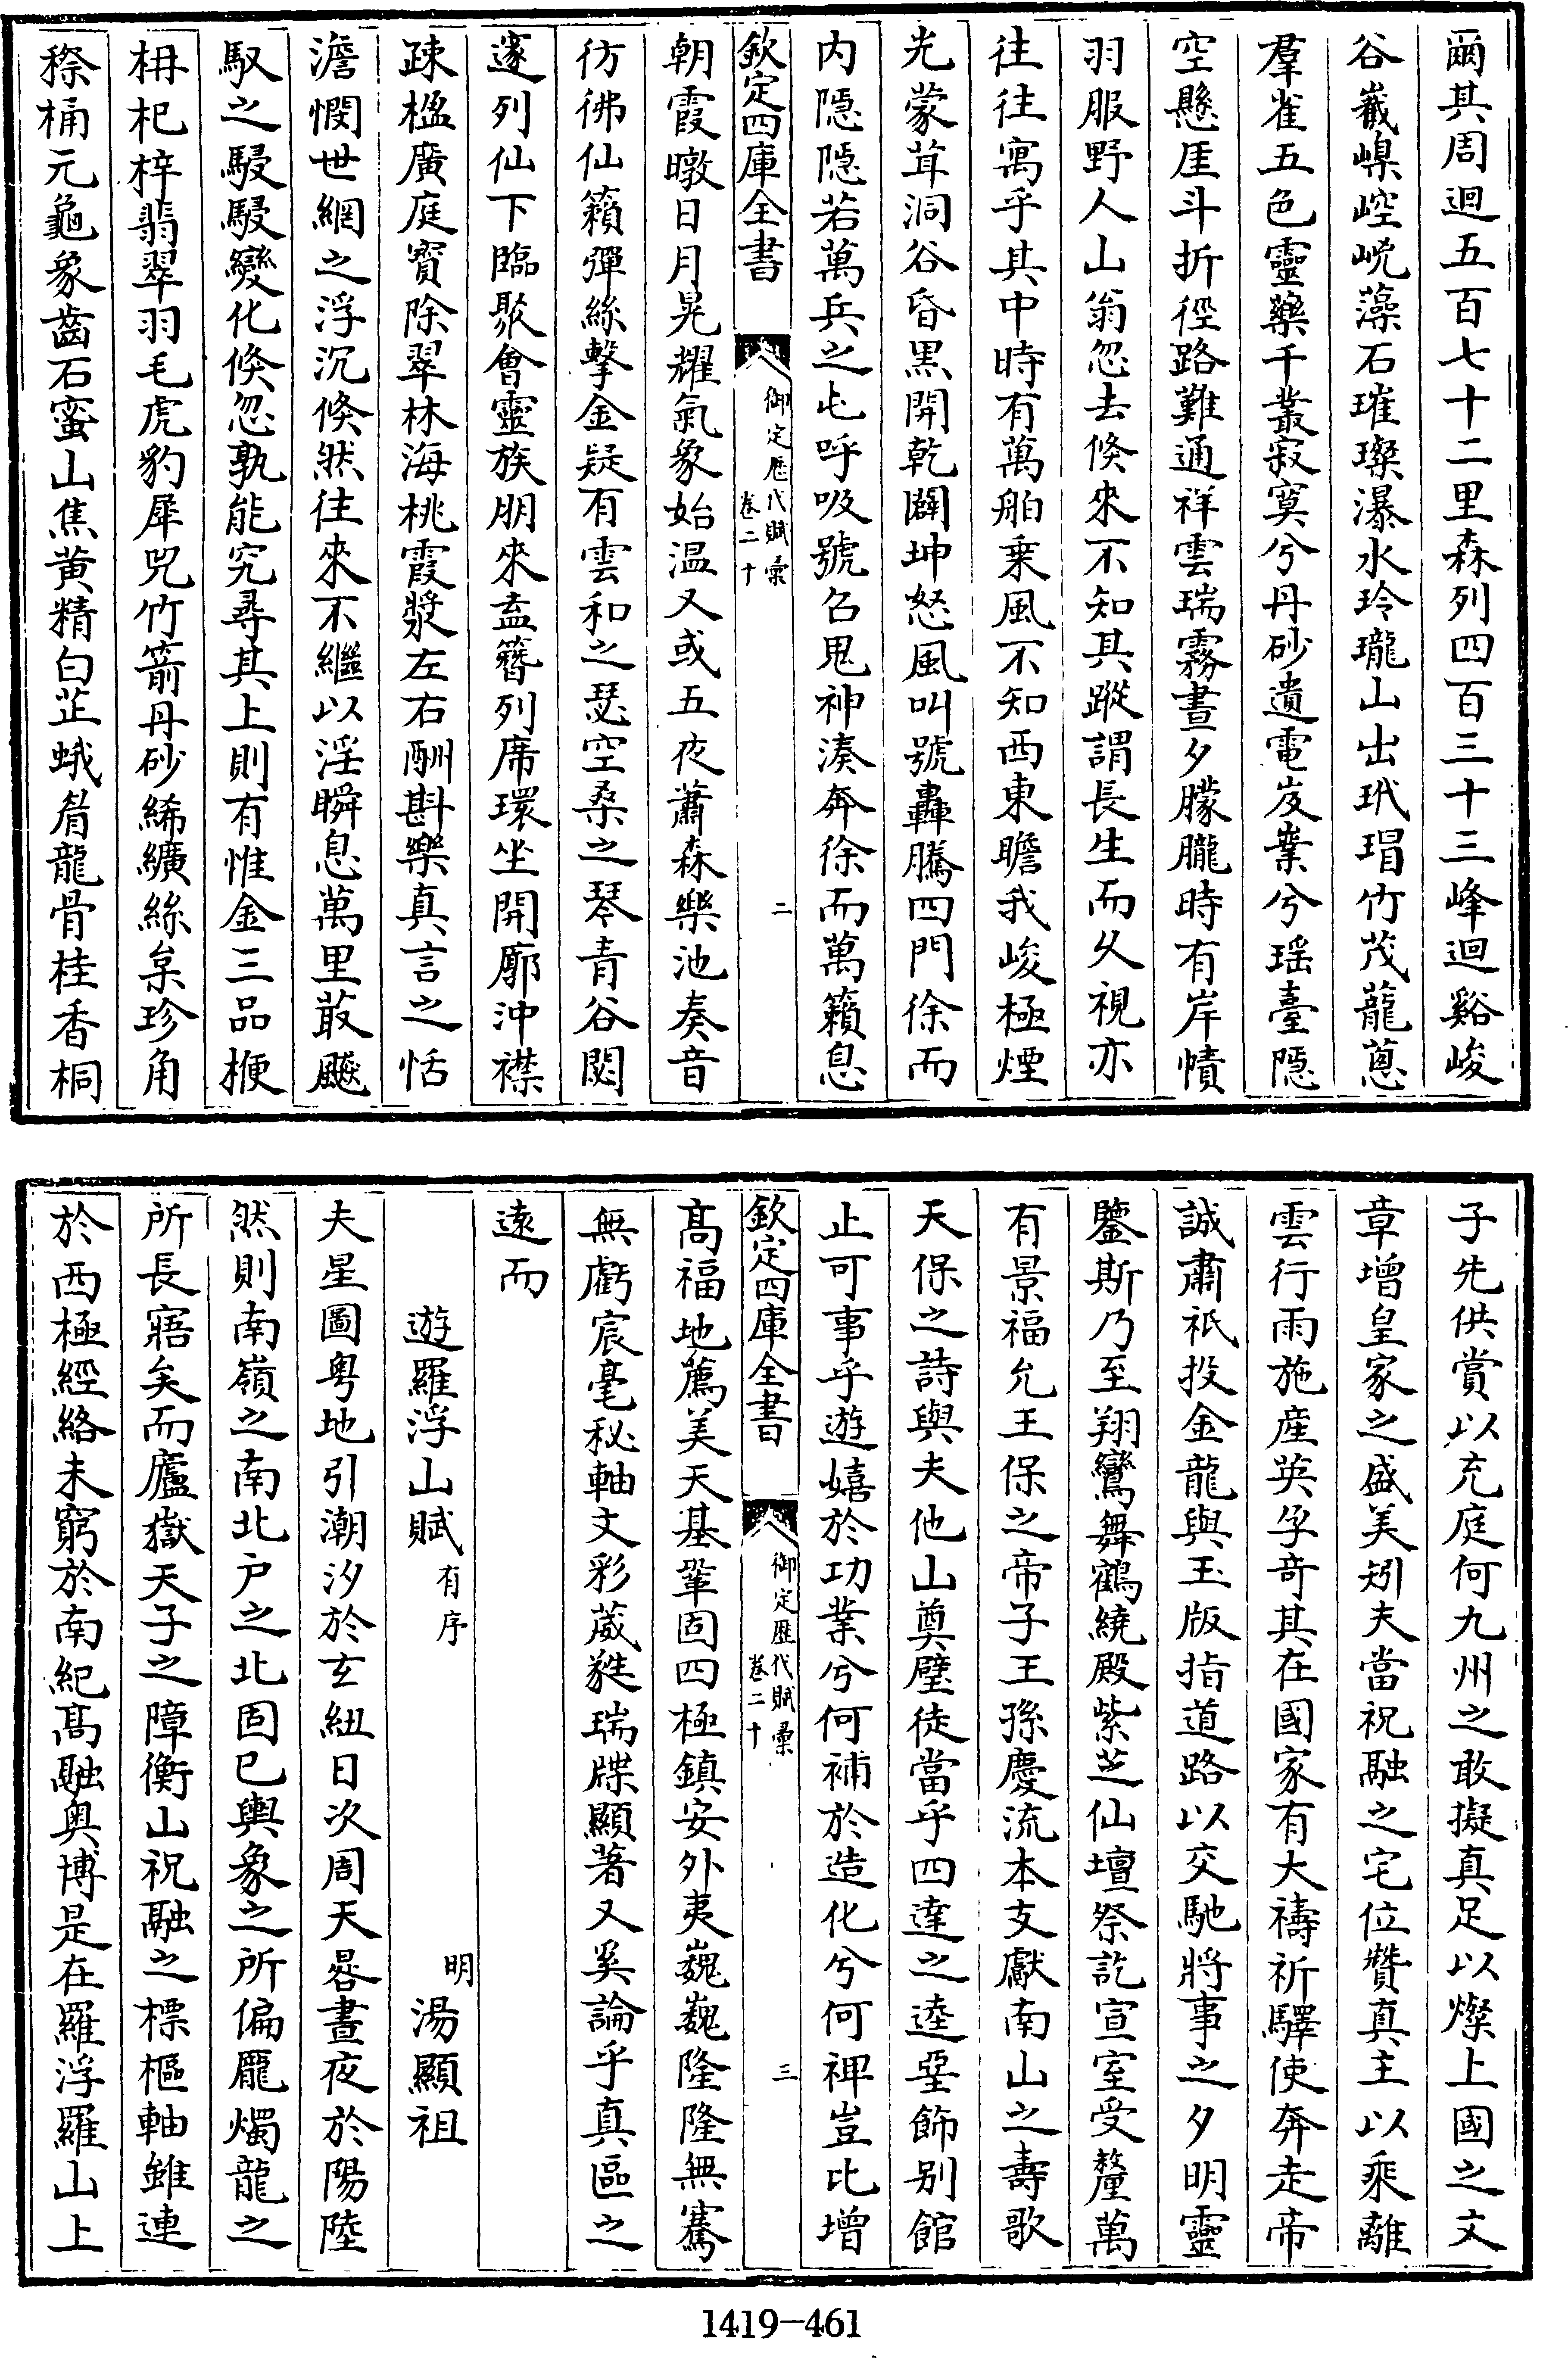 爾其周迴五百七十二里森列四百三十三峰迴谿峻
谷巀嵲崆峣藻石璀璨瀑水玲瓏山出玳瑁竹茂蘢蔥
羣雀五色靈藥千叢寂寞兮丹砂遺電岌業兮瑶臺隱
空懸厓斗折徑路難通祥雲瑞霧晝夕朦朧時有岸幘
羽服野人山翁忽去倐來不知其蹤謂長生而乆視亦
往往寓乎其中時有萬舶乗風不知西東瞻我峻極煙
光蒙茸洞谷昏黒開乾闢坤怒風叫號轟騰四門徐而
内隠隠若萬兵之屯呼吸號召鬼神湊奔徐而萬籟息
欽定四庫全書
御定歴代賦彚
卷二十
二
朝霞暾日月晃耀氣象始温又或五夜蕭森樂池奏音
彷彿仙籟彈絲擊金疑有雲和之瑟空桑之琴青谷閟
邃列仙下臨聚會靈族朋來盍簪列席環坐開廓沖襟
疎楹廣庭寳除翠林海桃霞漿左右酬斟樂真言之恬
澹憫世網之浮沉倐然往來不繼以淫瞬息萬里菆飈
馭之駸駸變化倐忽孰能究尋其上則有惟金三品楩
枏杞梓翡翠羽毛虎豹犀兕竹箭丹砂絺纊絲枲珍角
穄桶元龜象齒石蜜山焦黄精白芷蛾眉龍骨桂香桐
子先供賞以充庭何九州之敢擬真足以燦上國之文
章增皇家之盛美矧夫當祝融之宅位贊真主以乘離
雲行雨施産英孕奇其在國家有大禱祈驛使奔走帝
誠肅祇投金龍與玉版指道路以交馳將事之夕明靈
鑒斯乃至翔鸞舞鶴繞殿紫芝仙壇祭訖宣室受釐萬
有景福允王保之帝子王孫慶流本支獻南山之壽歌
天保之詩與夫他山奠璧徒當乎四達之逵堊飾别館
止可事乎遊嬉於功業兮何補於造化兮何裨豈比增
欽定四庫全書
御定歴代賦彚
卷二十
三
髙福地薦美天基鞏固四極鎮安外夷巍巍隆隆無騫
無虧宸毫秘軸文彩葳蕤瑞牒顯著又奚論乎真區之
逺而
遊羅浮山賦有序
明湯顯祖
夫星圖粤地引潮汐於玄紐日次周天晷晝夜於陽陸
然則南嶺之南北户之北固已輿象之所偏龎燭龍之
所長寤矣而廬嶽天子之障衡山祝融之標樞軸雖連
於西極經絡未窮於南紀髙融奥博是在羅浮羅山上